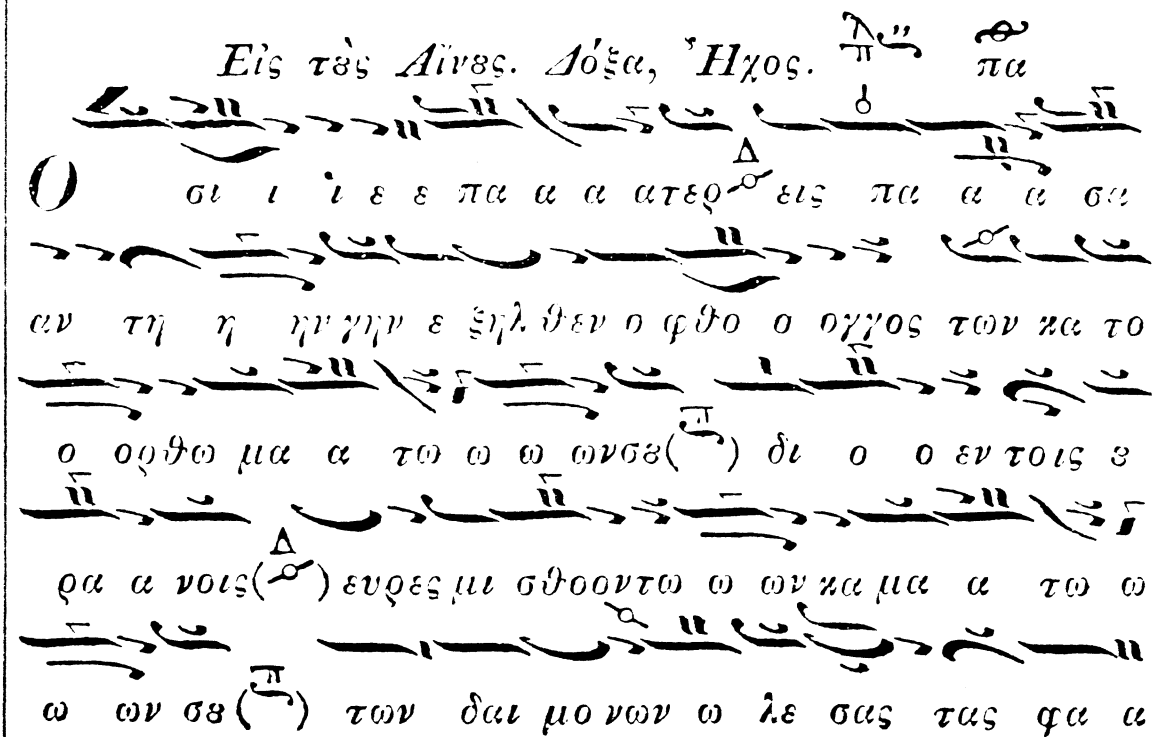 Εἰς τȣ̀ς Αἴνȣς. Δόξα, Ἦχος. λ π πα
Ο σι ι ι ε ε πα α α ατερ Δ εις πα α α σα
αν τη η ην γην ε ξηλ θεν ο φθο ο ογγος των κα το
ο ορθω μα α τω ω ω ωνσȣ (π) δι ο ο εν τοις ȣ
ρα α νοις (Δ) ευρες μι σθοοντω ω ων κα μα α τω ω
ω ων σȣ (π) των δαι μο νων ω λε σας τας φα α